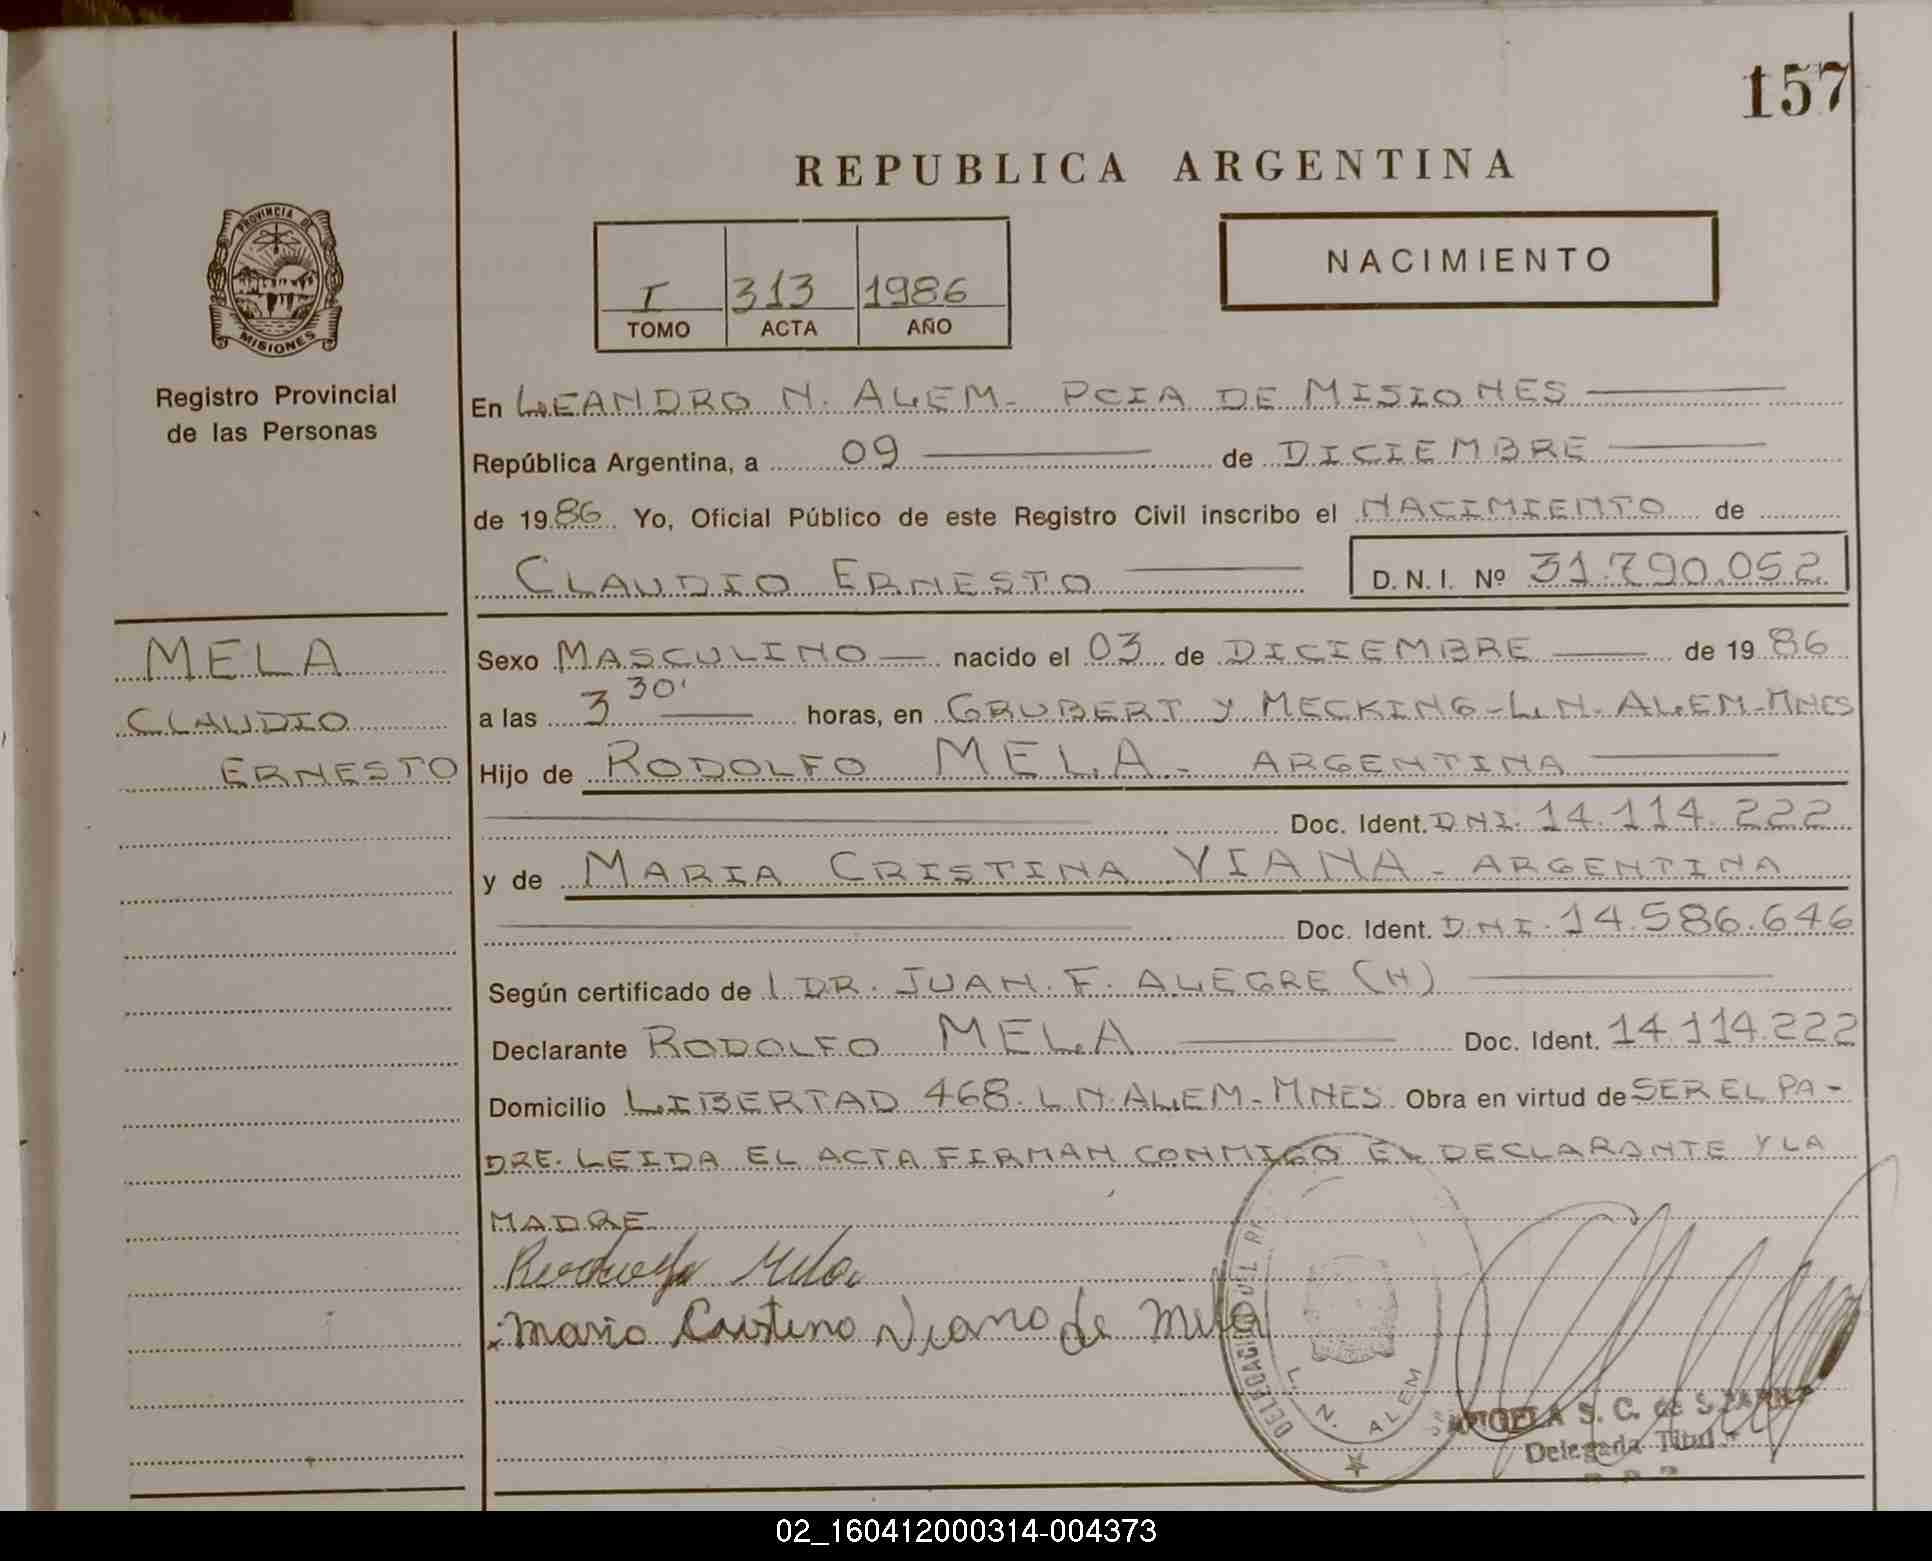 157
REPUBLICA ARGENTINA
PROVINCIA DE
MISIONES
I 313 1986
TOMO ACTA AÑO
NACIMIENTO
Registro Provincial
de las Personas
En LEANDRO N. ALEM - PCIA DE MISIONES
República Argentina, a 09 de DICIEMBRE
de 1986 Yo, Oficial Público de este Registro Civil inscribo el NACIMIENTO de
CLAUDIO ERNESTO D.N.I. Nº 31.790.052
MELA
CLAUDIO
ERNESTO
Sexo MASCULINO nacido el 03 de DICIEMBRE de 1986
a las 3 30' horas, en GRUBERT y MECKING - L.N. ALEM - MNES
Hijo de RODOLFO MELA - ARGENTINA
Doc. Ident. DNI. 14.114.222
y de MARIA CRISTINA VIANA - ARGENTINA
Doc. Ident. D.N.I. 14.586.646
Según certificado de l DR. JUAN. F. ALEGRE (H)
Declarante RODOLFO MELA Doc. Ident. 14.114.222
Domicilio LIBERTAD 468. L N. ALEM - MNES Obra en virtud de SER EL PA-
DRE. LEIDA EL ACTA FIRMAN CONMIGO EL DECLARANTE Y LA
MADRE
Rodolfo Mela
Maria Cristina Viana de Mela
L. N. ALEM
S. C. de
Delegada Titular
02_160412000314-004373